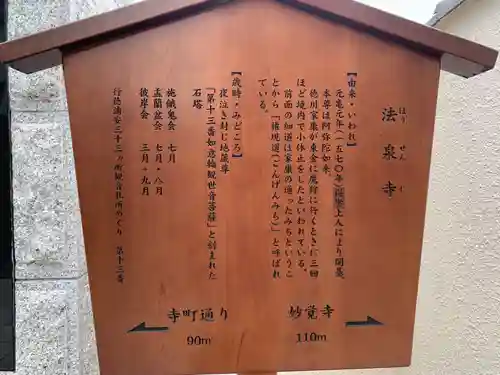 法泉寺
ほうせんじ
【由来・いわれ】
元亀元年(一五七〇年)上人により開基。
本尊は阿弥陀如来。
徳川家康が東金に鷹狩に行くときに三回
ほど境内で小休止をしたといわれている。
前面の細道は家康の通ったみちというこ
とから「権現道(ごんげんみち)」と呼ばれ
ている。
【歳時・みどころ】
夜泣き封じ地蔵尊
「第十三番如意輪観世音菩薩」と刻まれた
石塔
施餓鬼会 七月
盂蘭盆会 七月・八月
彼岸会 三月・九月
行徳浦安三十三ヶ所観音札所めぐり 第十三番
妙覚寺
110m
寺町通り
90m